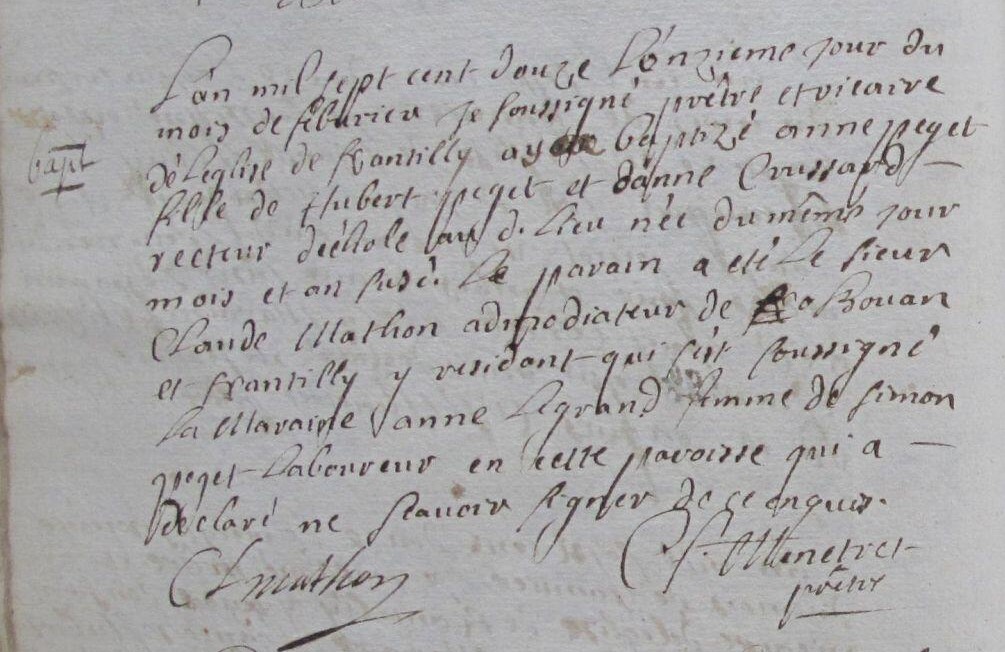 bapt
L'an mil sept cent douze L'onzieme jour du
mois de febvrier je soussigné prêtre et vicaire
de Leglise de frantilly ay baptizé anne peget
fille de Hubert peget et d'anne Croussard
recteur déchole au d. Lieu née du même jour
mois et an susd. Le parain a eté Le sieur
Claude Mathon admodiateur de
et frantilly y residant qui s'est soussigné
La Maraine anne Legrand femme de simon
peget Laboureur en cette paroisse qui a
declaré ne scavoir signer de ce enquis.
C Mathon
C. f. Menetret
prêtre